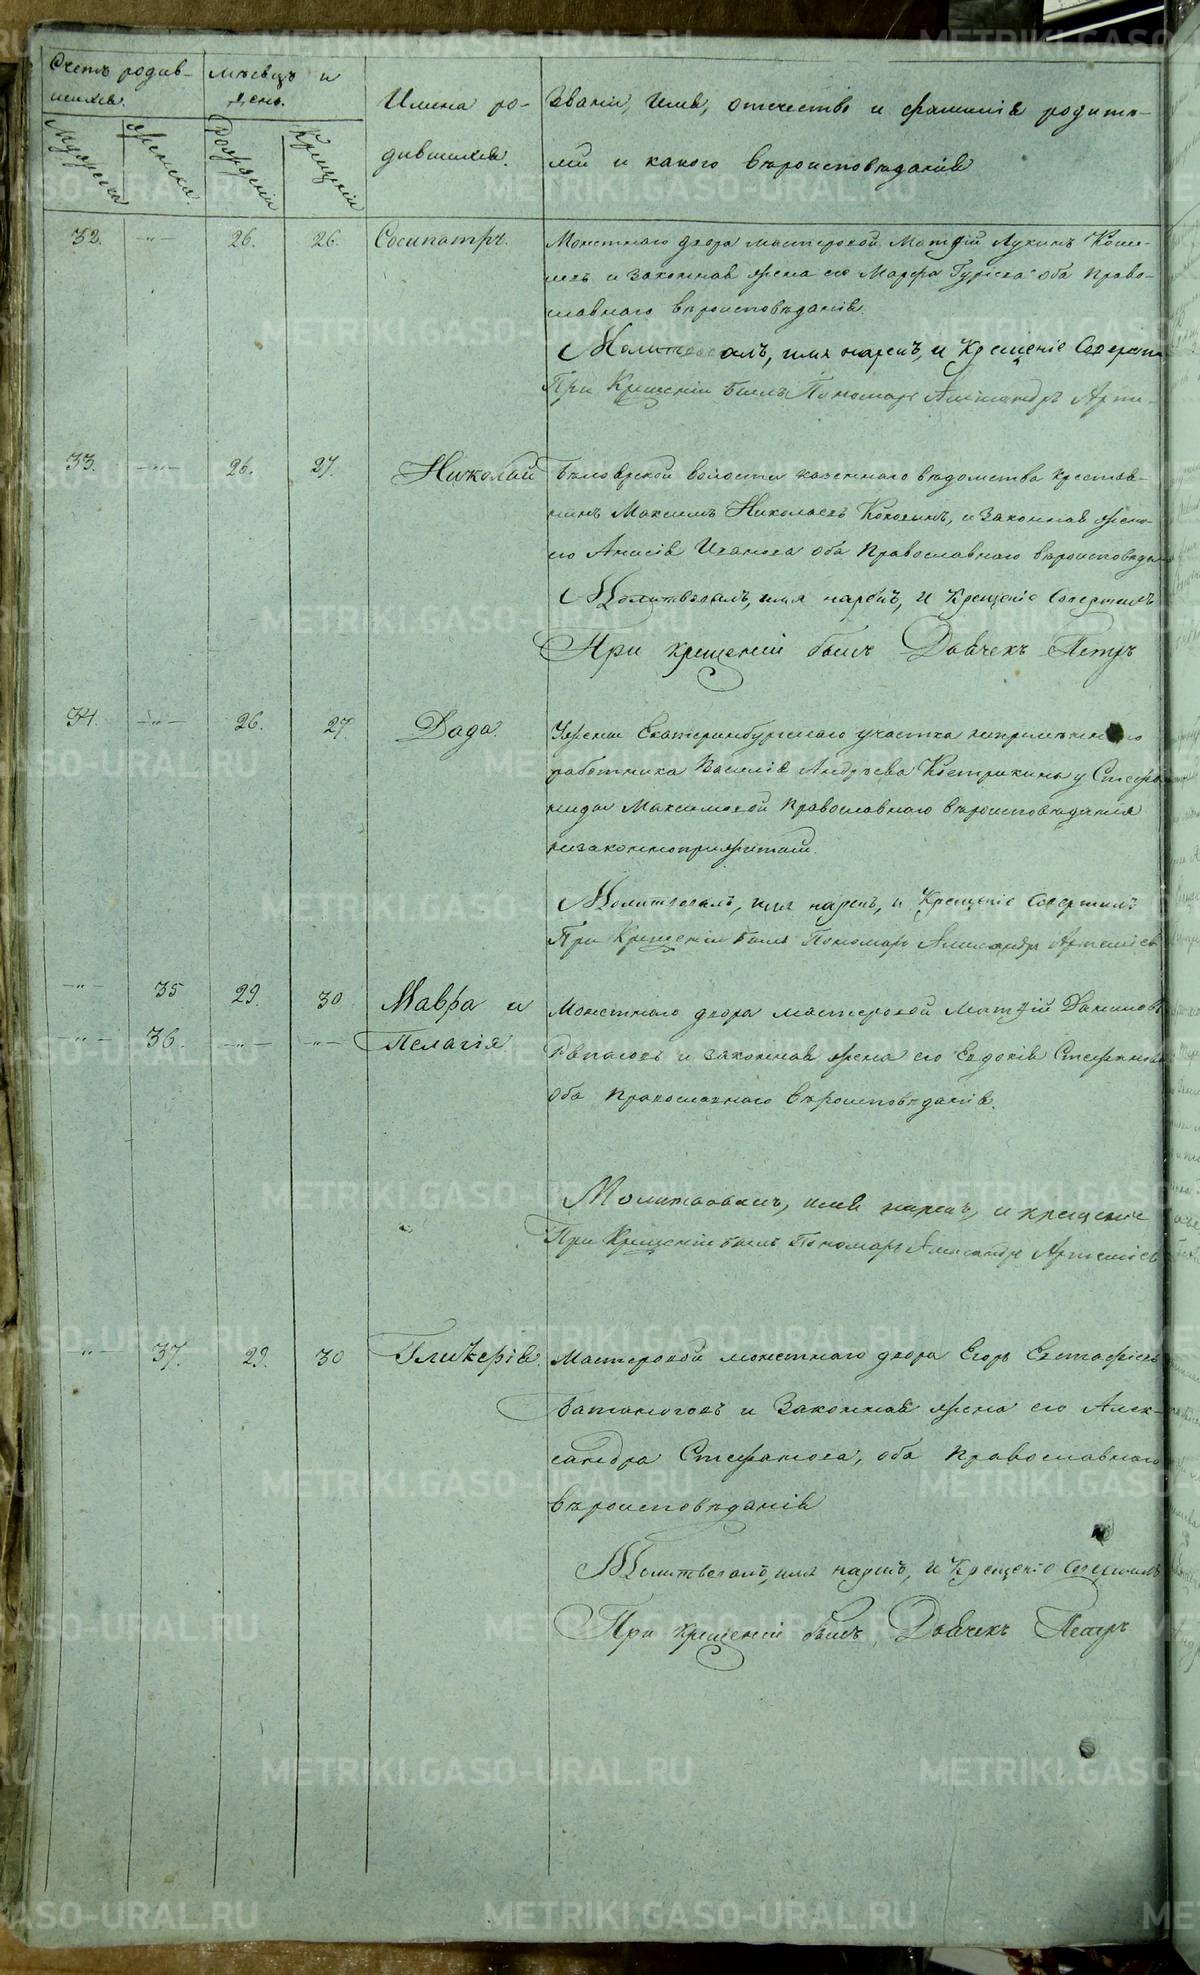 Счетъ родив-
шихся.
Мѣсяцъ и
день.
Имена ро-
дившихся.
Званіе, имя, отчество и фамилія родите-
лей и какого вѣроисповѣданія
Мужеска
Женска.
Рожденія
Крещенія
32. -"- 26. 26. Сосипатръ. Монетнаго двора мастеровой Матфій Лукинъ
и законная жена его Марфа Гурьева оба право-
славнаго вѣроисповѣданія.
Молитвовалъ, имя нарекъ, и Крещеніе
При Крещеніи былъ Пономарь Александръ Арте-
33. -"- 26. 27. Николай волости казеннаго вѣдомства крестья-
нинъ Максимъ Николаевъ и законная жена
его Анисія Иванова оба Православнаго вѣроисповѣда
Молитвовалъ, имя нарекъ, и Крещеніе совершилъ
При крещеніи былъ Дьячекъ Петръ
34. -"- 26. 27 Дада. Жены Екатеринбургскаго участка непремѣннаго
работника Василія Андреева Кострикина у Стефа
ниды Максимовой Православнаго вѣроисповѣданія
незаконноприжитый.
Молитвовалъ, имя нарекъ, и Крещеніе совершилъ
При Крещеніи былъ Пономарь Александръ Артеміевъ
-"- 35 29. 30 Мавра и Монетнаго двора мастеровой Матфій Даниловъ
-"- 36. -"- -"- Пелагія и законная жена его Евдокія Стефанова
оба Православнаго вѣроисповѣданія.
Молитвовалъ, имя нарекъ, и крещеніе
При Крещеніи былъ Пономарь Александръ Артеміевъ
-"- 37. 29. 30 Гликерія. Мастеровой монетнаго двора Егоръ Евстафіевъ
и Законная жена его Алек-
сандра Стефанова, оба Православнаго
вѣроисповѣданія
Молитвовалъ, имя нарекъ, и Крещеніе совершилъ
При крещеніи былъ Дьячекъ Петръ
METRIKI.GASO-URAL.RU